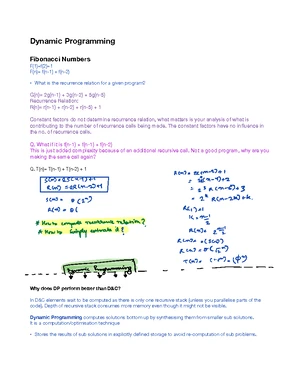 Dynamic Programming
Fibonacci Numbers
F(1)=f(2)=1
F(n)= f(n-1) + f(n-2)
• What is the recurrence relation for a given program?
G(n)= 2g(n-1) + 3g(n-2) + 5g(n-5)
Recurrence Relation:
R(n)= r(n-1) + r(n-2) + r(n-5) + 1
Constant factors do not determine recurrence relation, what matters is your analysis of what is
contributing to the number of recurrence calls being made. The constant factors have no influence in
the no. of recursive calls.
Q. What if it is f(n)= f(n-1) + f(n-1) + f(n-2)
This is just added complexity because of an additional recursive call. Not a good program, why are you
making the same call again?
Q. T(n)= T(n-1) + T(n-2) + 1
# How to compute recurrence relation?
# How to simply estimate it?
Dynamic Programming
Why does DP perform better than D&C?
In D&C elements wait to be computed as there is only one recursive stack (unless you parallelise parts of the
code). Depth of recursive stack consumes more memory even though it might not be visible.
Dynamic Programming computes solutions bottom-up by synthesising them from smaller sub solutions.
It is a computation/optimisation technique
• Stores the results of sub solutions in explicitly defined storage to avoid re-computation of sub problems.